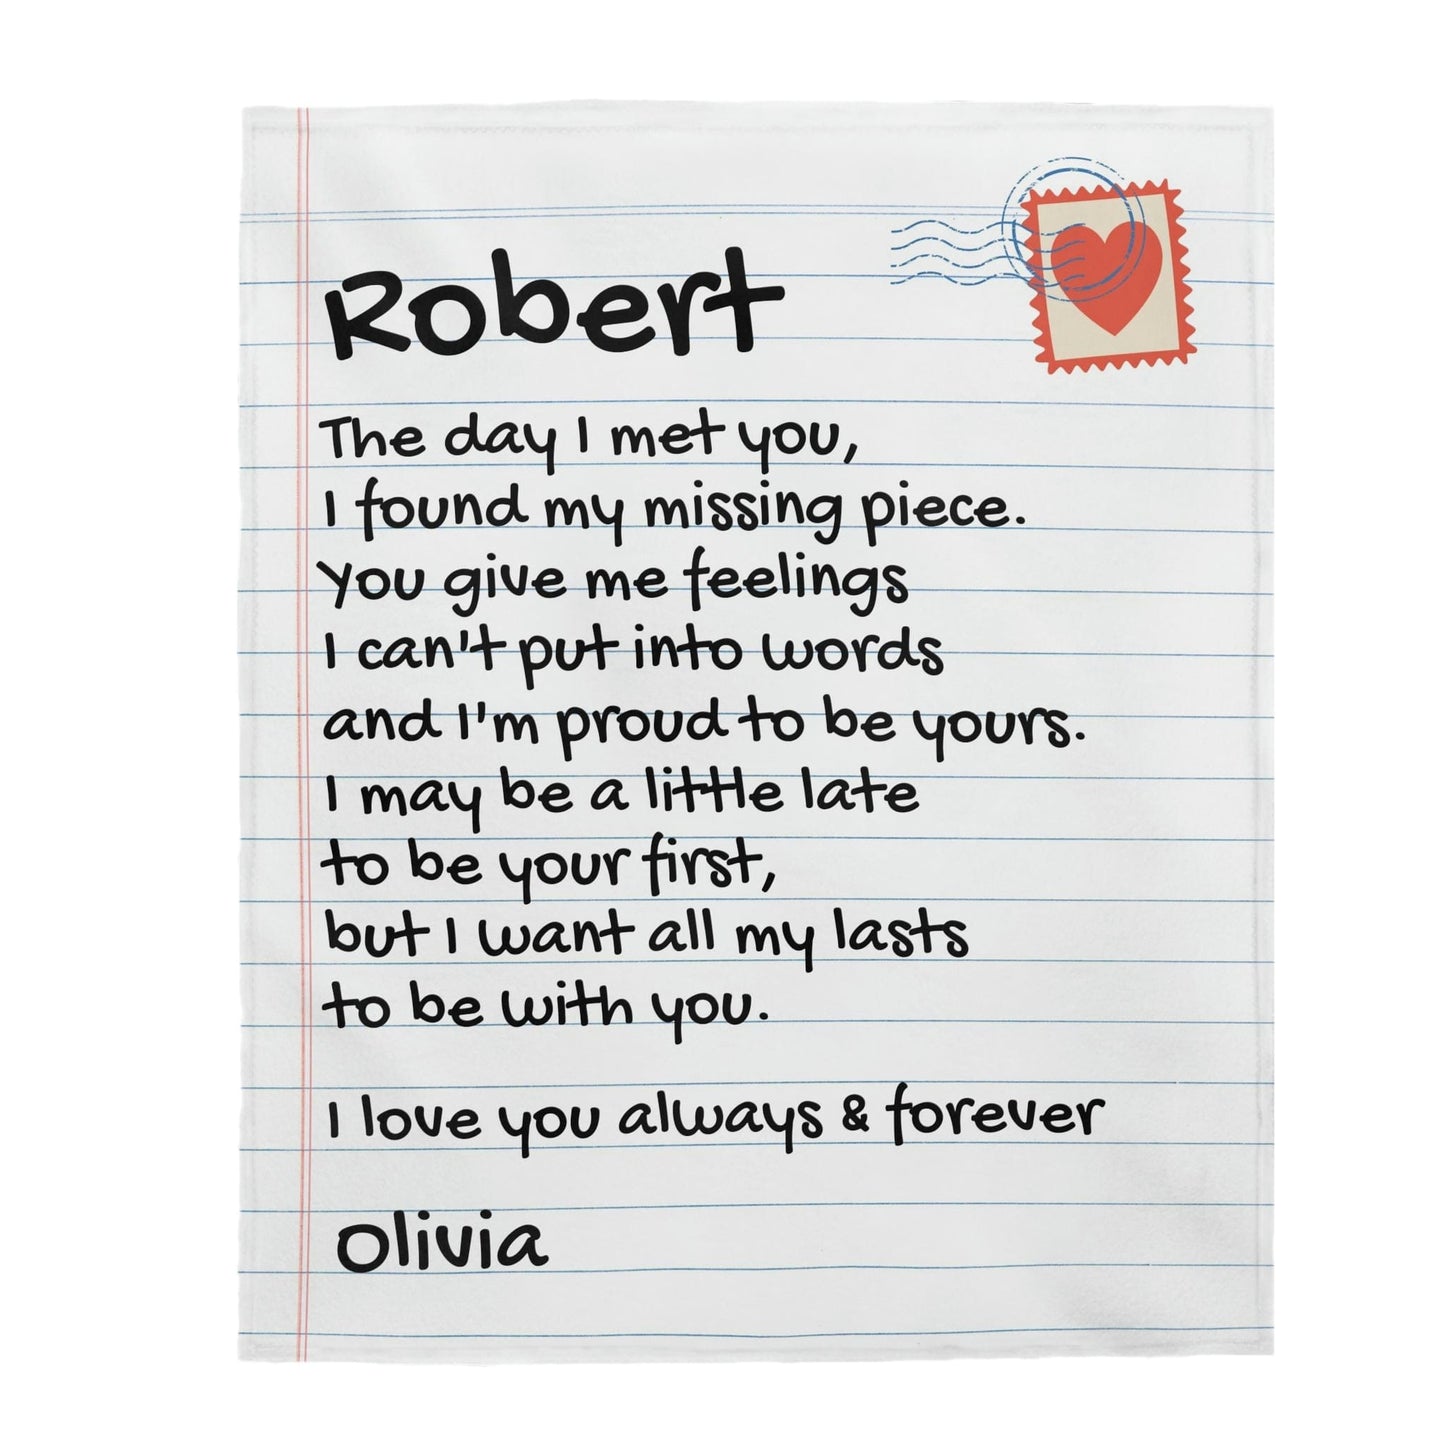 Robert
The day I met you,
I found my missing piece.
You give me feelings
I can't put into words
and I'm proud to be yours.
I may be a little late
to be your first,
but I want all my lasts
to be with you.
I love you always & forever
Olivia